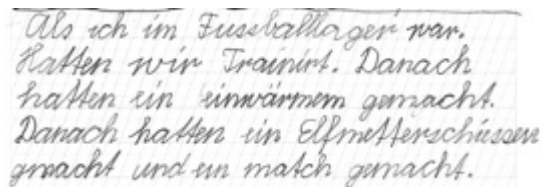 Als ich im Fussballlager war.
Hatten wir Trainirt. Danach
hatten ein einwärmem gemacht.
Danach hatten ein Elfmetterschiessen
gmacht und ein match gemacht.